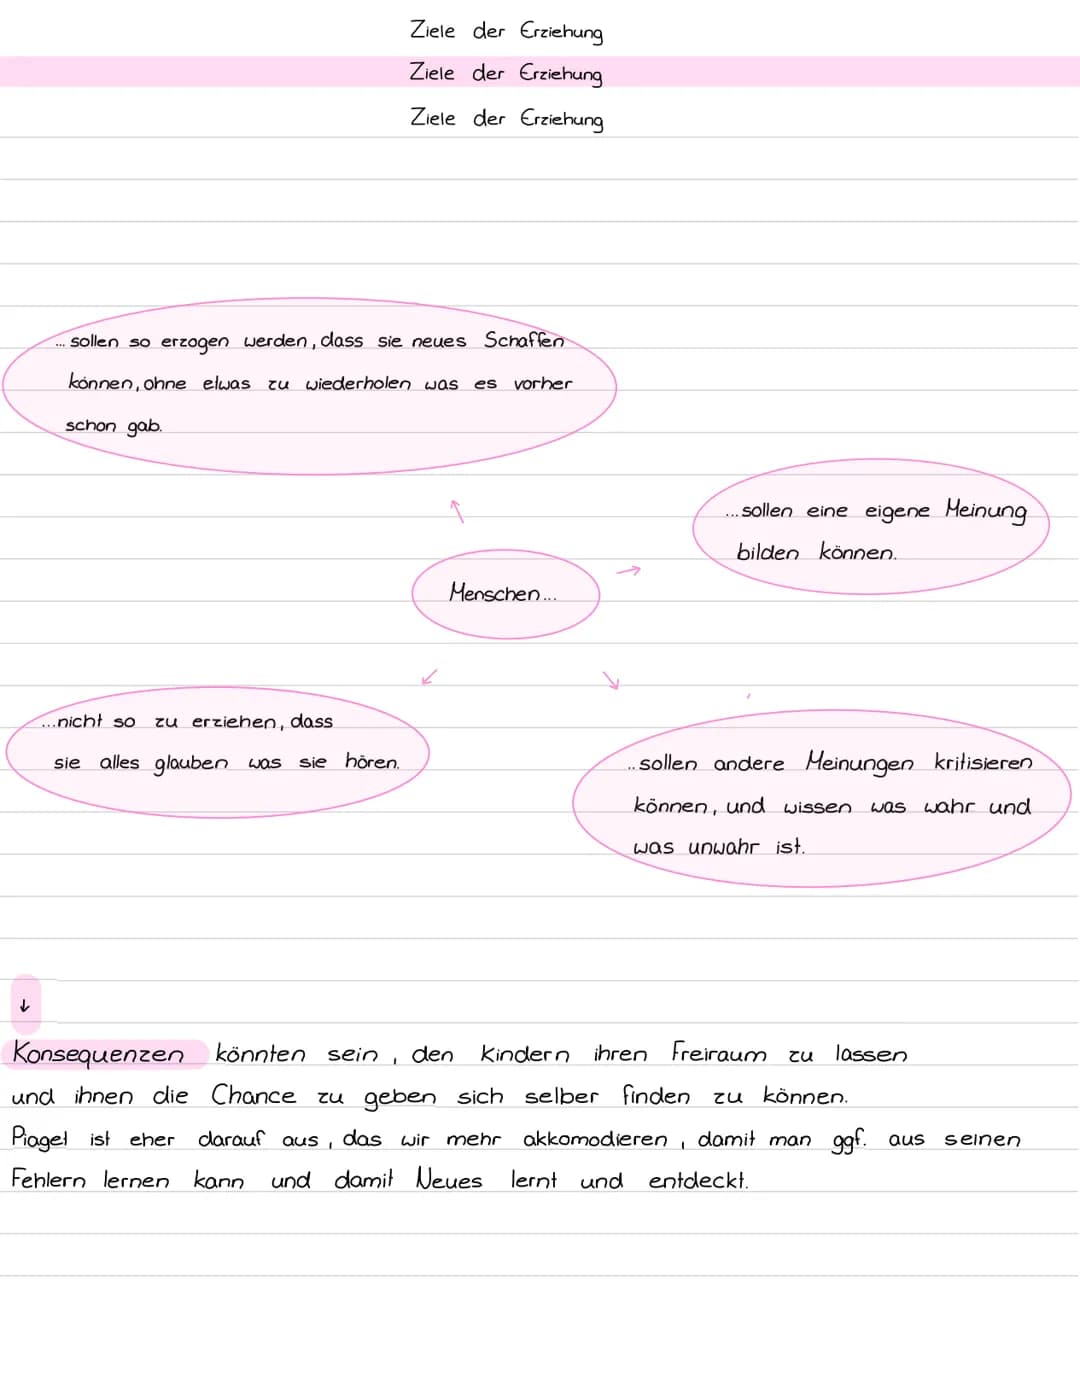 Ziele der Erziehung
Ziele der Erziehung
Ziele der Erziehung
... sollen so erzogen werden, dass sie neues Schaffen
können, ohne elwas zu wiederholen was es vorher
schon gab.
...sollen eine eigene Meinung
bilden können.
Menschen...
...nicht so zu erziehen, dass
sie alles glauben was sie hören.
..sollen andere Meinungen kritisieren
können, und wissen was wahr und
was unwahr ist.
↓
Konsequenzen könnten sein, den kindern ihren Freiraum zu lassen
und ihnen die Chance zu geben sich selber finden zu können.
Piaget ist eher darauf aus, das wir mehr akkomodieren, damit man ggf. aus seinen
Fehlern lernen kann und damit Neues lernt und entdeckt.